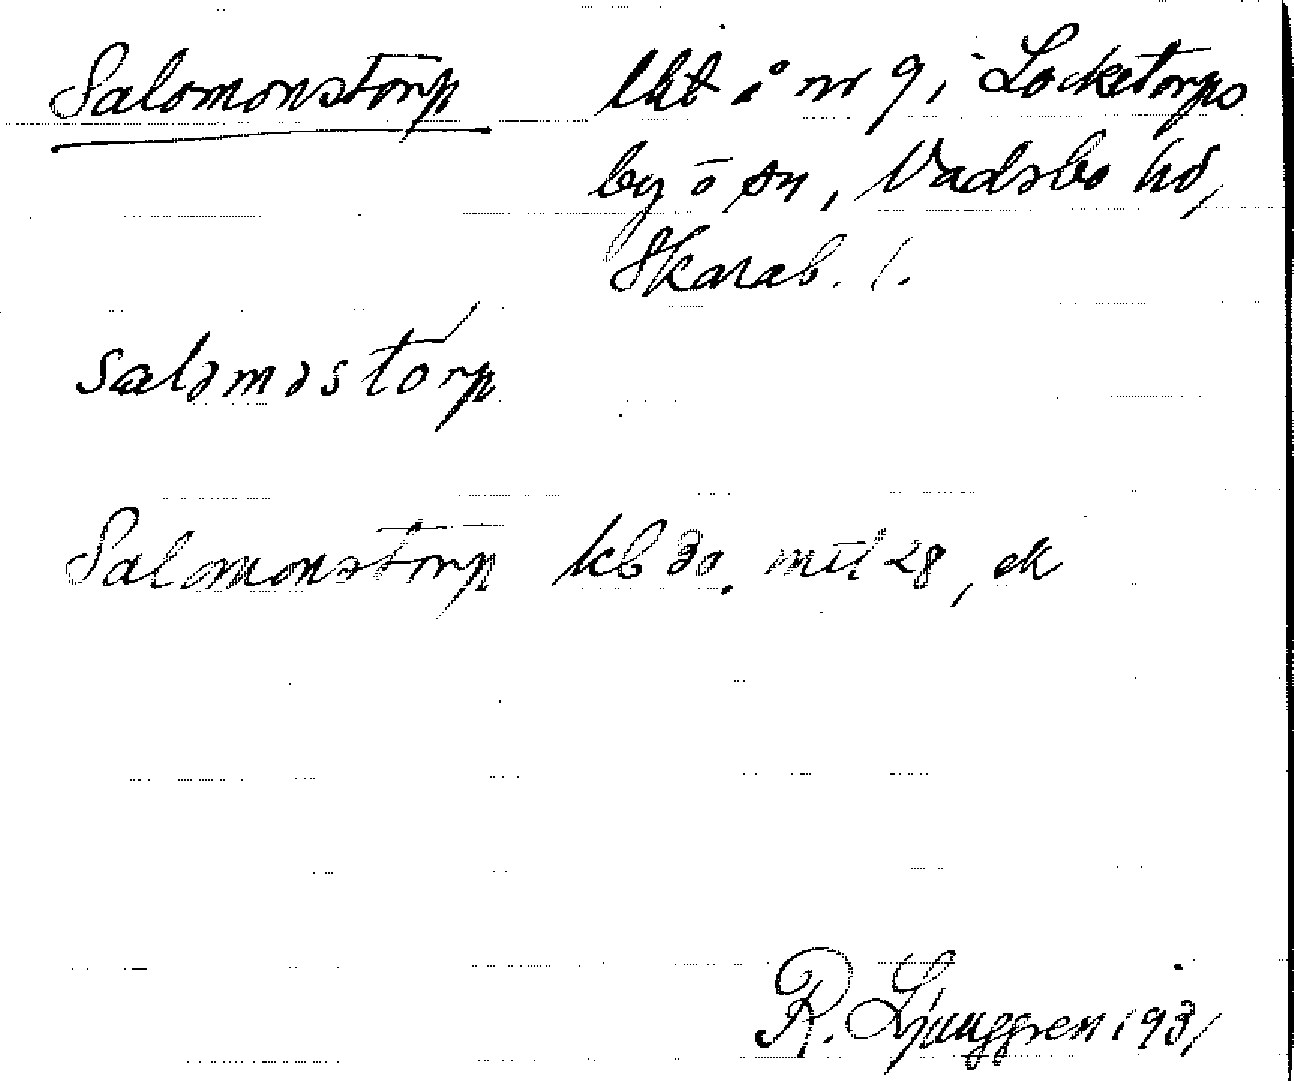 Salomonstorp lht å nr 9 i Locketorps
by o sn, Vadsbo hd,
Skarab. l.
salomostorp
Salomonstorp kb 30, mtl 28, ek
R. Ljunggren 1931